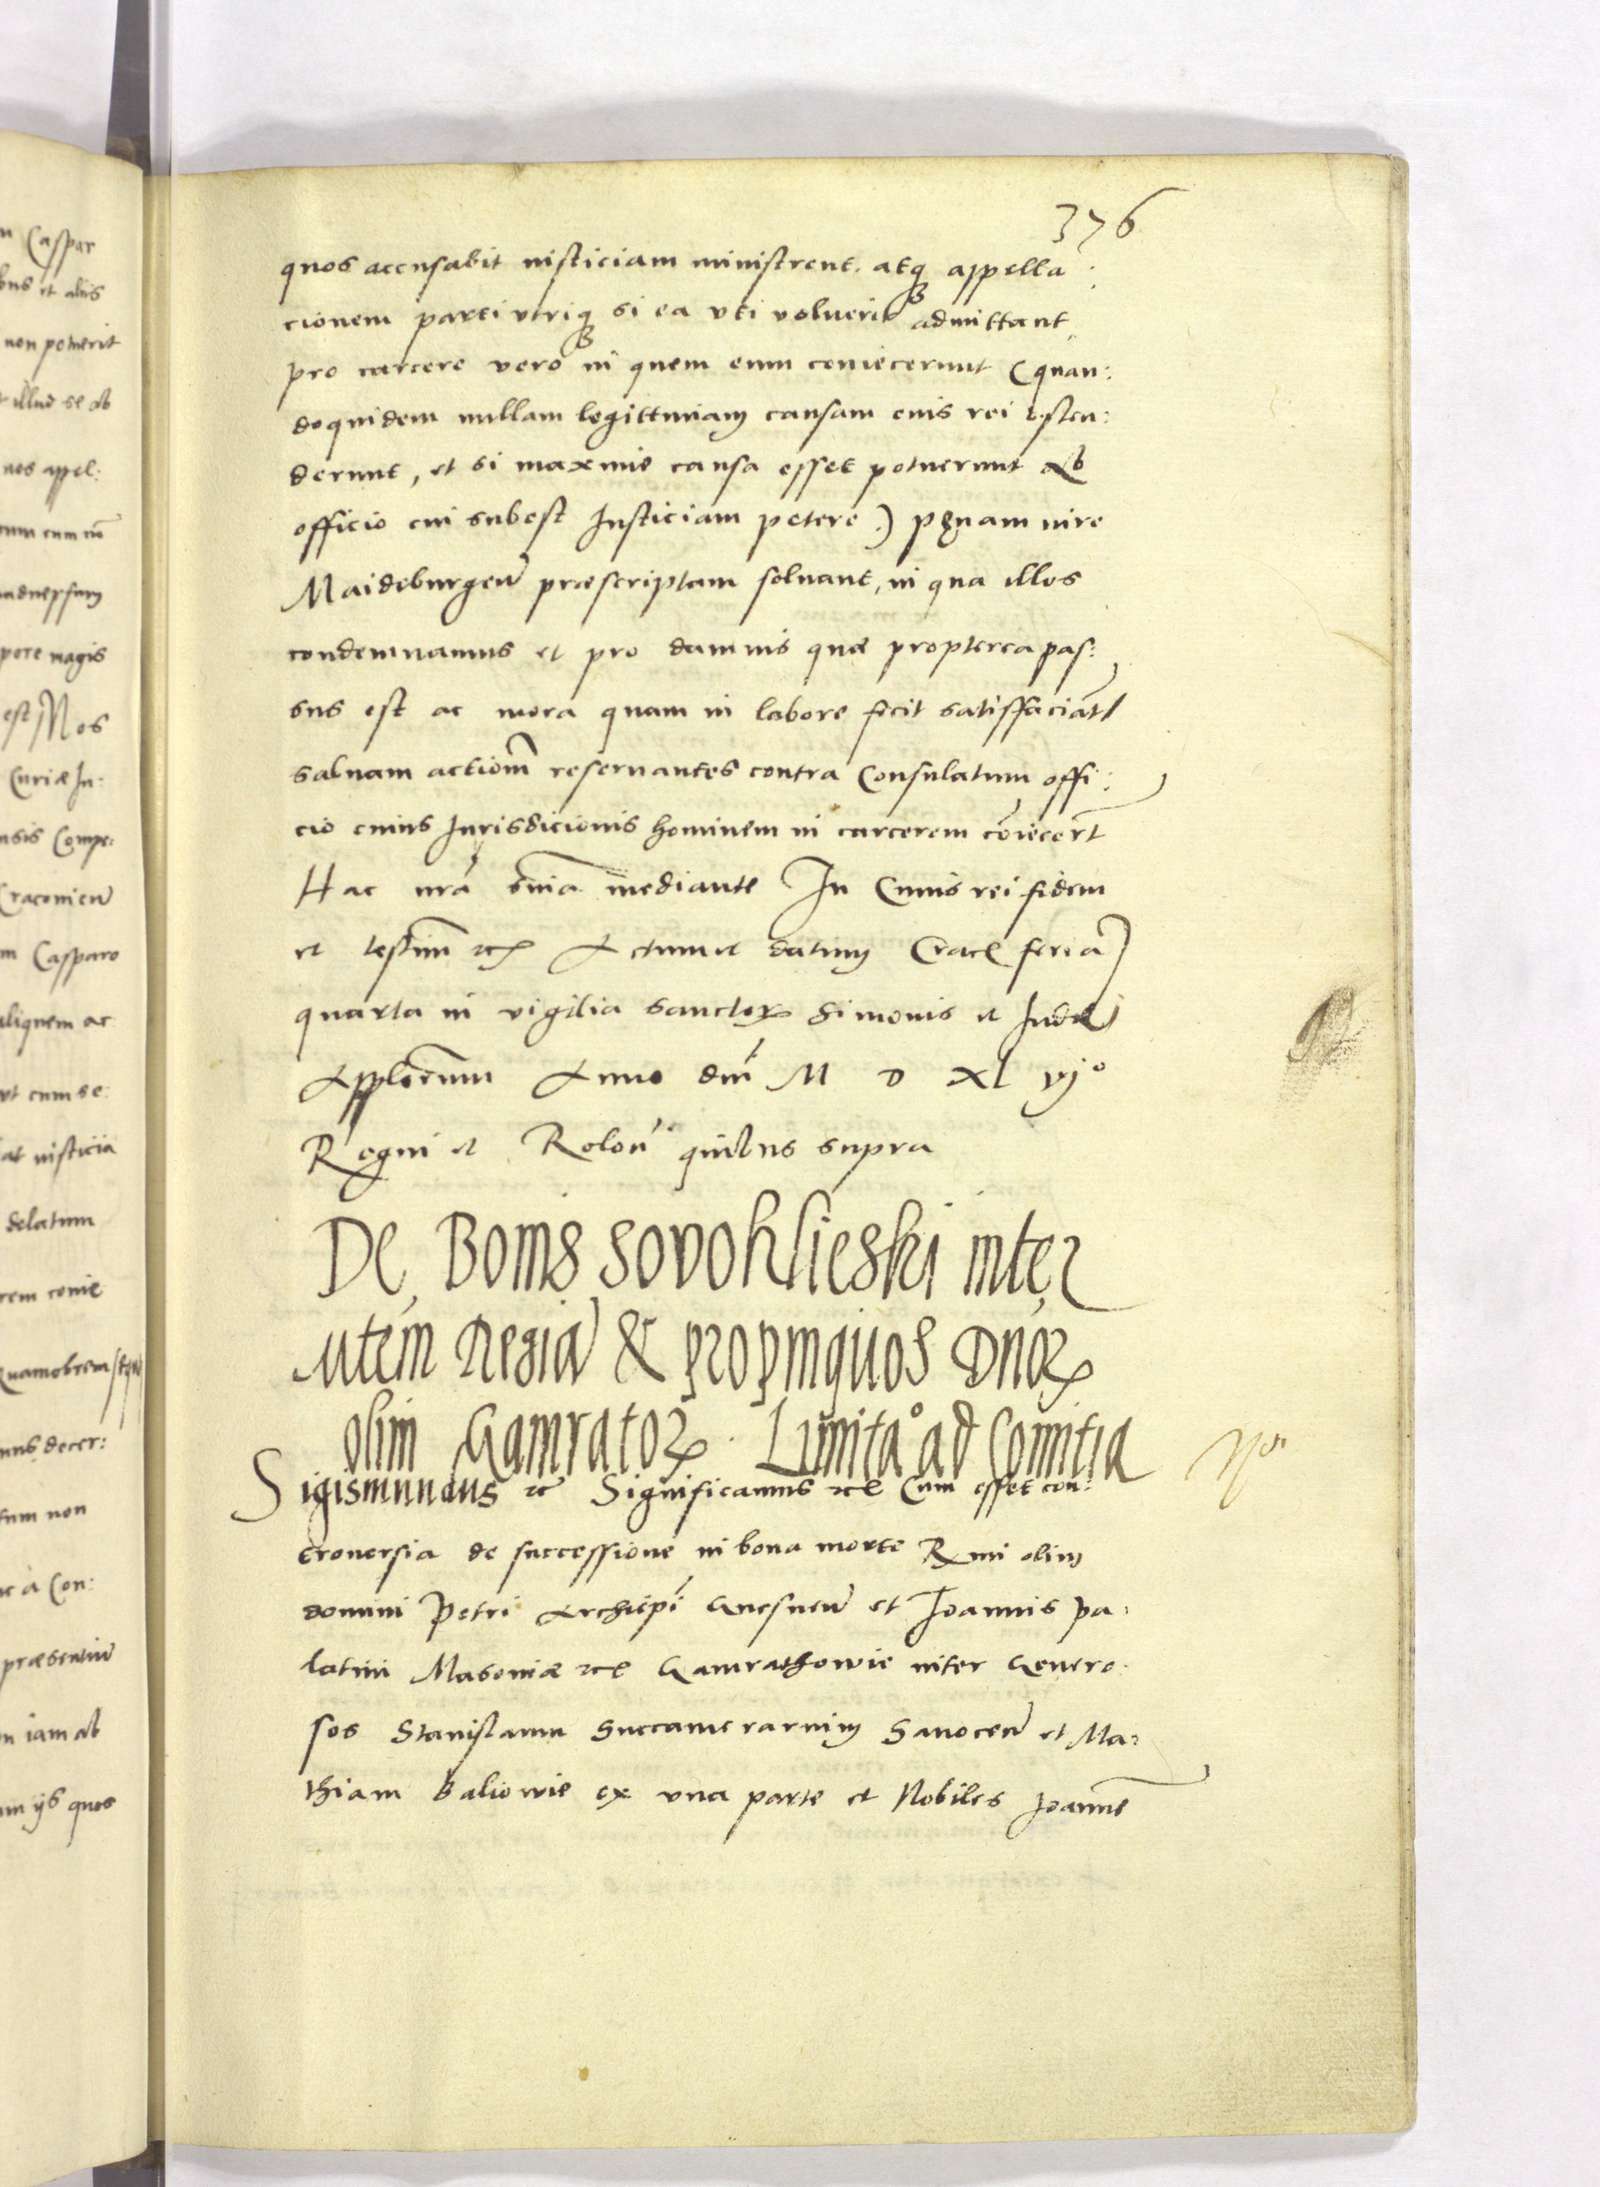 376
quos accusabit iusticiam ministrent. atq3 appella:
cionem parti utriq3 si ea uti voluerit admittant
pro carcere vero in quem eum coniecerunt (quan:
doquidem nullam legittimam causam euis rei osten:
derunt, et si maxime causa esset potuerunt ab
officio cui subest Iusticiam petere) pęnam iure
Maideburgen̄ præscriptam soluant, in qua illos
condemnamus et pro damnis quæ propterea pas:
sus est ac mora quam in labore fecit satisfaciāt
saluam actiom̄ reseruantes contra Consulatum offi:
cio cuius Iurisdicionis hominem in carcerem cōiecert̄
Hac nrā snīa mediante In Cuius rei fidem
et testim̄ etc Actum et datum Crac feria
quarta in vigilia sanctorꝝ Simonis et Iudæ
Applorum̄ Anno dni M D XL vjº
Regni et Relon̄ quibus supra
De Bonis Sovoklieski inter
Mtem Regiā & propinquos Dnorꝝ
olim Gamratorꝝ. Limitaº ad Comitia
Nº
Sigismundus etc Significamus etc Cum esset con:
trouersia de successione in bona morte Rmi olim
domini Petri Archiepi Gnesnen̄ et Ioannis pa:
latini Masoniæ etc Gamrathowie inter Genero:
sos Stanislaum Succamerarium Sanocen̄ et Ma:
thiam Baliowie ex una parte et Nobiles Ioannē
n Caspar
bus et aliis
non poterit
t illud se ab
nos appel:
pere magis
est Nos
Curiæ In:
nsis Compe:
Cracouien̄
m Casparo
aliquem ac
ut cum se
at iusticia
delatum
rem conie
Quamobrem
mus decer:
tum non
c a Con:
præsentium
n iam ab
um ijs quos